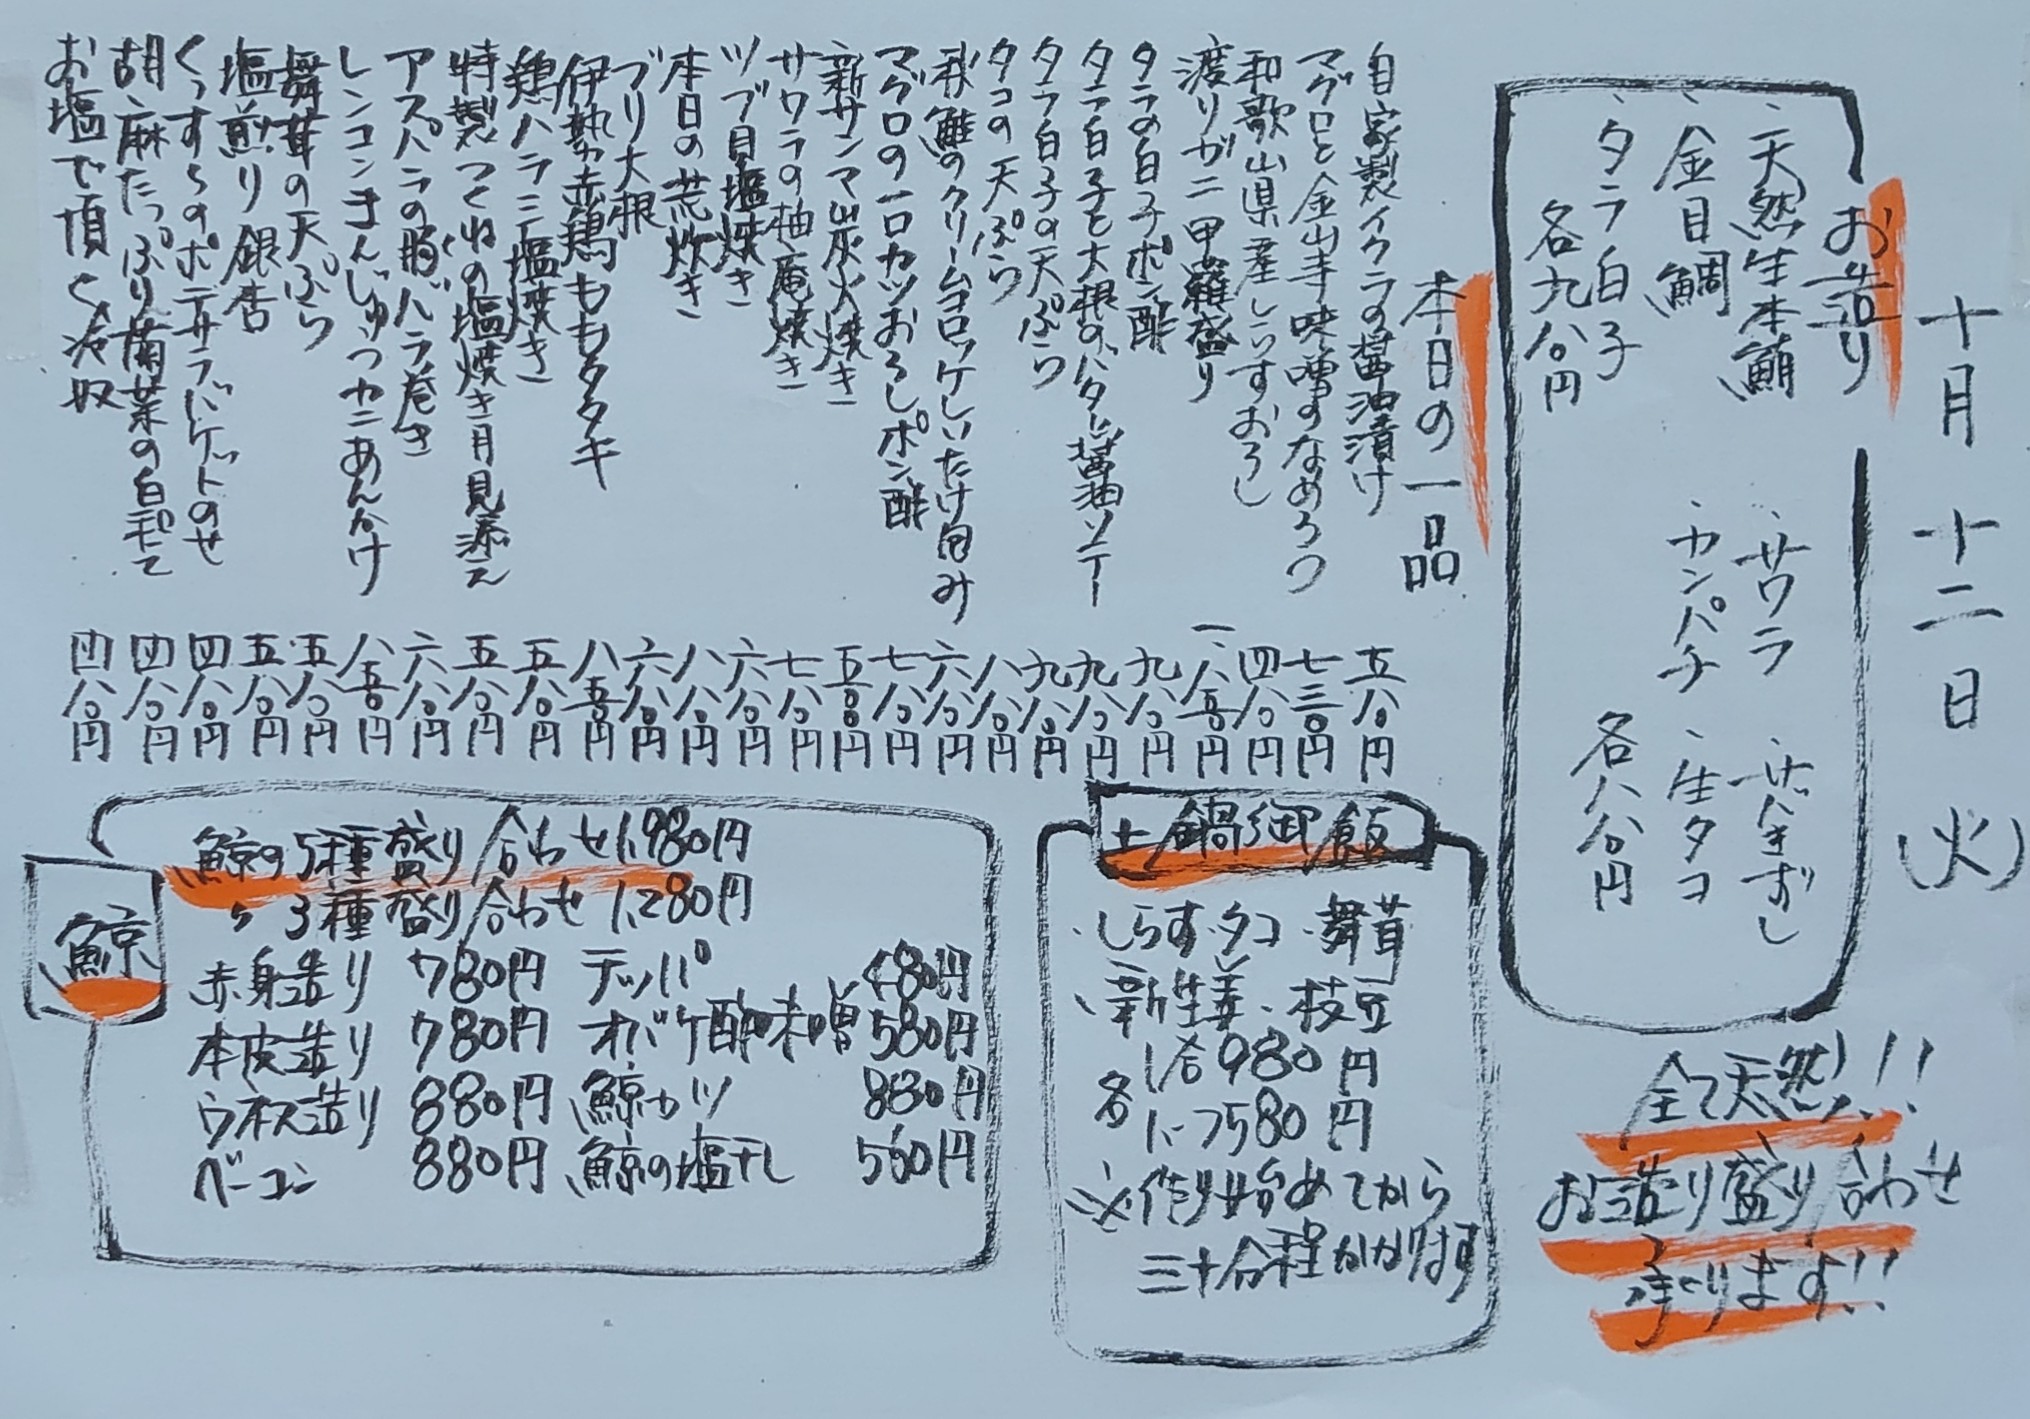 十月 十二日 (火)
お造り
・天然生本鮪
・サワラ
・サヨリ
・金目鯛
・カンパチ
・生タコ
・タラ白子
各九八〇円
各八八〇円
全て天然!!
お造り盛り合わせ
承ります!!
本日の一品
自家製イクラの醤油漬け 五八〇円
マグロと金山寺味噌のなめろう 七三〇円
和歌山県産しらすおろし 四八〇円
渡りガニ甲羅盛り 一、八五〇円
タラの白子ポン酢 九八〇円
タラ白子と大根のバター醤油ソテー 九八〇円
タラ白子の天ぷら 九八〇円
タコの天ぷら 八八〇円
秋鮭のクリームコロッケしいたけ包み 六八〇円
マグロの一口カツおろしポン酢 七八〇円
新サンマ炭火焼き 五〇〇円
サワラの柚庵焼き 七八〇円
ツブ貝塩焼き 六八〇円
本日の荒炊き 八八〇円
ブリ大根 六八〇円
伊勢赤鶏ももタタキ 八五〇円
鶏ハラミ塩焼き 五八〇円
特製つくねの塩焼き月見添え 五八〇円
アスパラの豚バラ巻き 六八〇円
レンコンまんじゅうカニあんかけ 八五〇円
舞茸の天ぷら 五八〇円
塩煎り銀杏 五八〇円
くんすらのポテサラバケットのせ 四八〇円
胡麻たっぷり菊菜の白和え 四八〇円
お塩で頂く冷奴 四八〇円
土鍋御飯
・しらす・タコ・舞茸
・新生姜・枝豆
各
1合980円
1.5つ580円
※作り始めてから
三十分程かかります
鯨
鯨の5種盛り合わせ1,980円
〃 3種盛り合わせ 1,280円
赤身造り 780円
テッパ 480円
本皮造り 780円
オバケ酢味噌 580円
ウネス造り 880円
鯨カツ 880円
ベーコン 880円
鯨の塩干し 560円